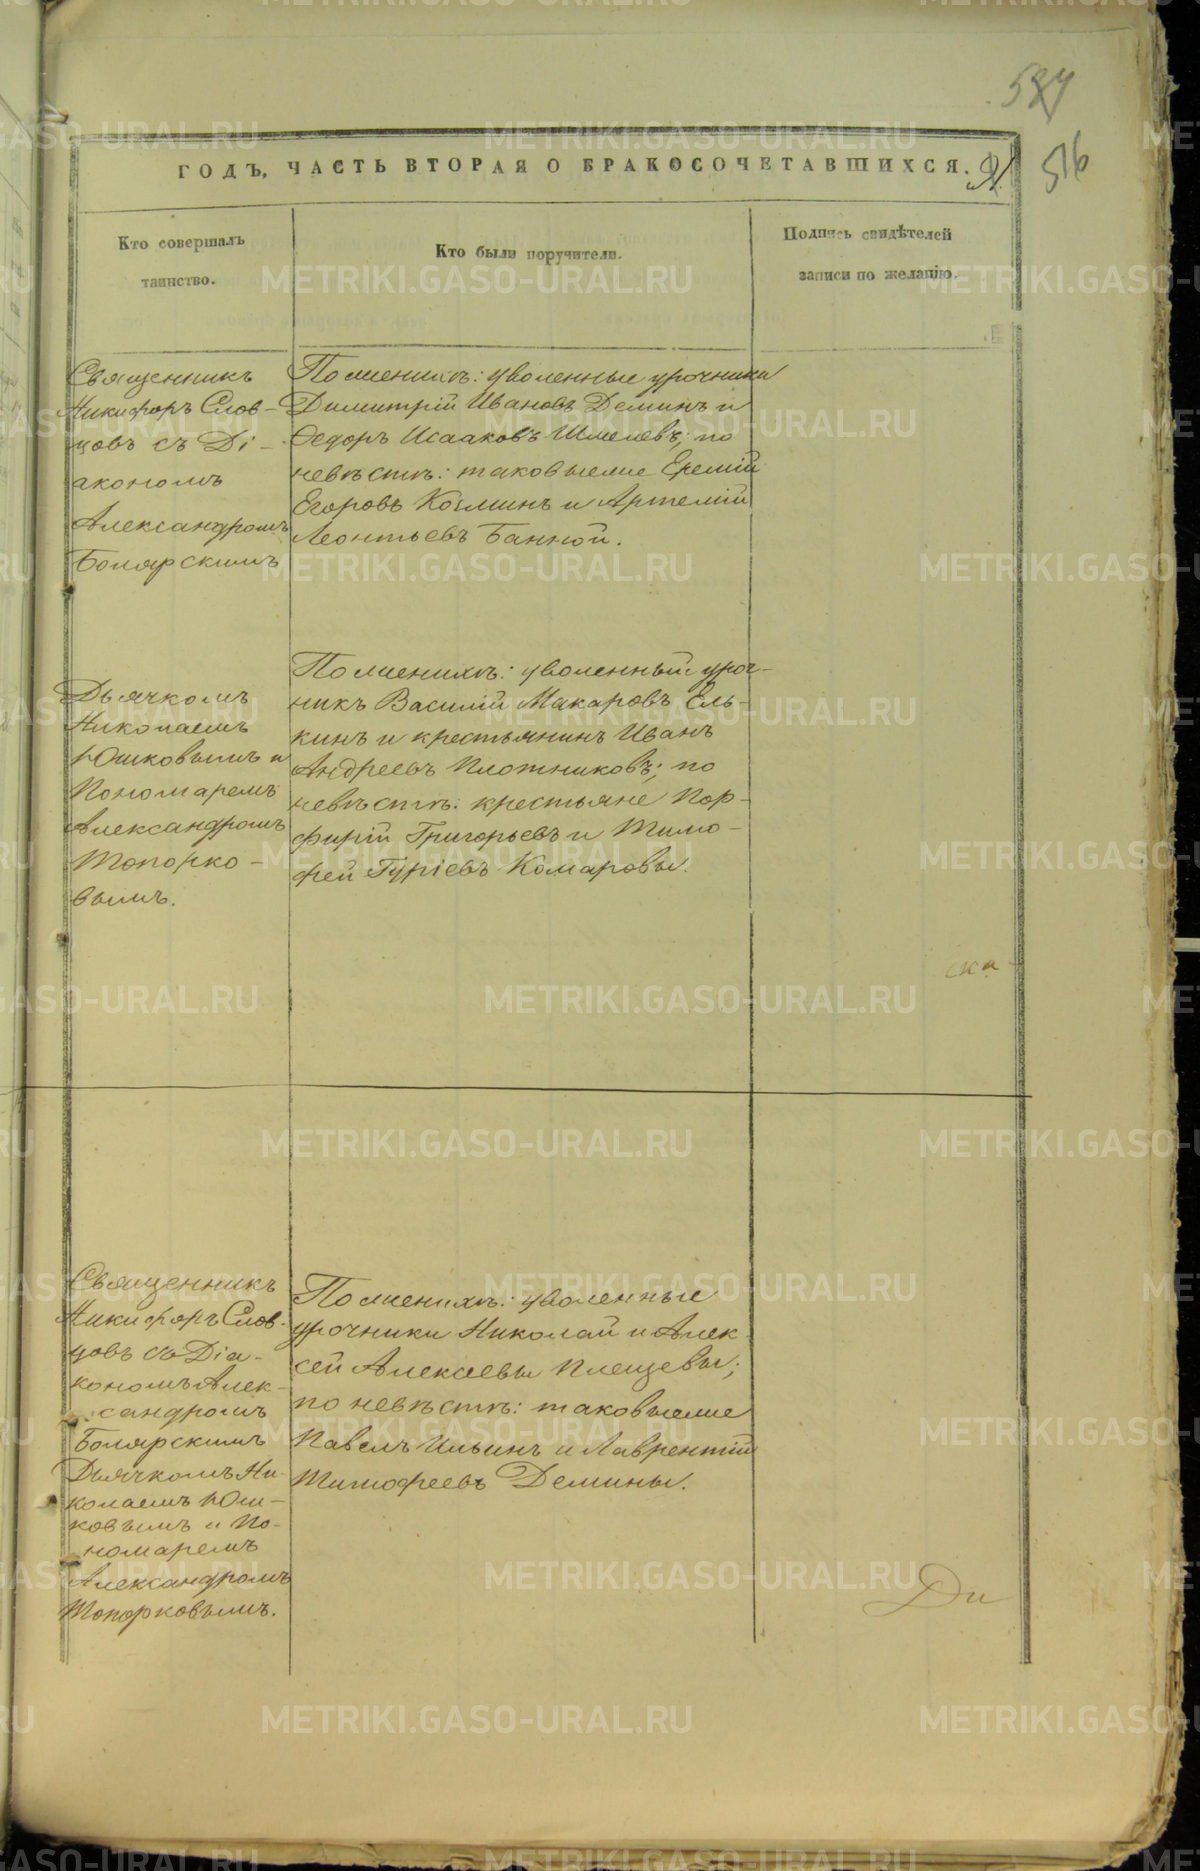 516
ГОДЪ, ЧАСТЬ ВТОРАЯ О БРАКОСОЧЕТАВШИХСЯ.
Кто совершалъ
таинство.
Кто были поручители.
Подпись свидѣтелей
записи по желанію.
Священникъ
Никифоръ Слов-
цовъ съ Ді-
акономъ
Александромъ
Боярскимъ
По женихѣ: уволенные урочники
Димитрій Ивановъ Деминъ и
Ѳедоръ Исааковъ Шмелевъ; по
невѣстѣ: таковыеже Еремій
Егоровъ Козминъ и Артемій
Леонтьевъ Банной.
Дьячкомъ
Николаемъ
Юшковымъ и
Пономаремъ
Александромъ
Топорко-
вымъ.
По женихѣ: уволенный уроч-
никъ Василій Макаровъ Ель-
кинъ и крестьянинъ Иванъ
Андреевъ Плотниковъ; по
невѣстѣ: крестьяне Пор-
фирій Григорьевъ и Тимо-
фей Гуріевъ Комаровы.
ска
Священникъ
Никифоръ Слов-
цовъ съ Діа-
кономъ Алек-
сандромъ
Боярскимъ
Дьячкомъ Ни-
колаемъ Юш-
ковымъ и По-
номаремъ
Александромъ
Топорковымъ.
По женихѣ: уволенные
урочники Николай и Алек-
сей Алексеевы Плещевы;
по невѣстѣ: таковыеже
Павелъ Ильинъ и Лаврентій
Тимофеевъ Демины.
Ди
METRIKI.GASO-URAL.RU